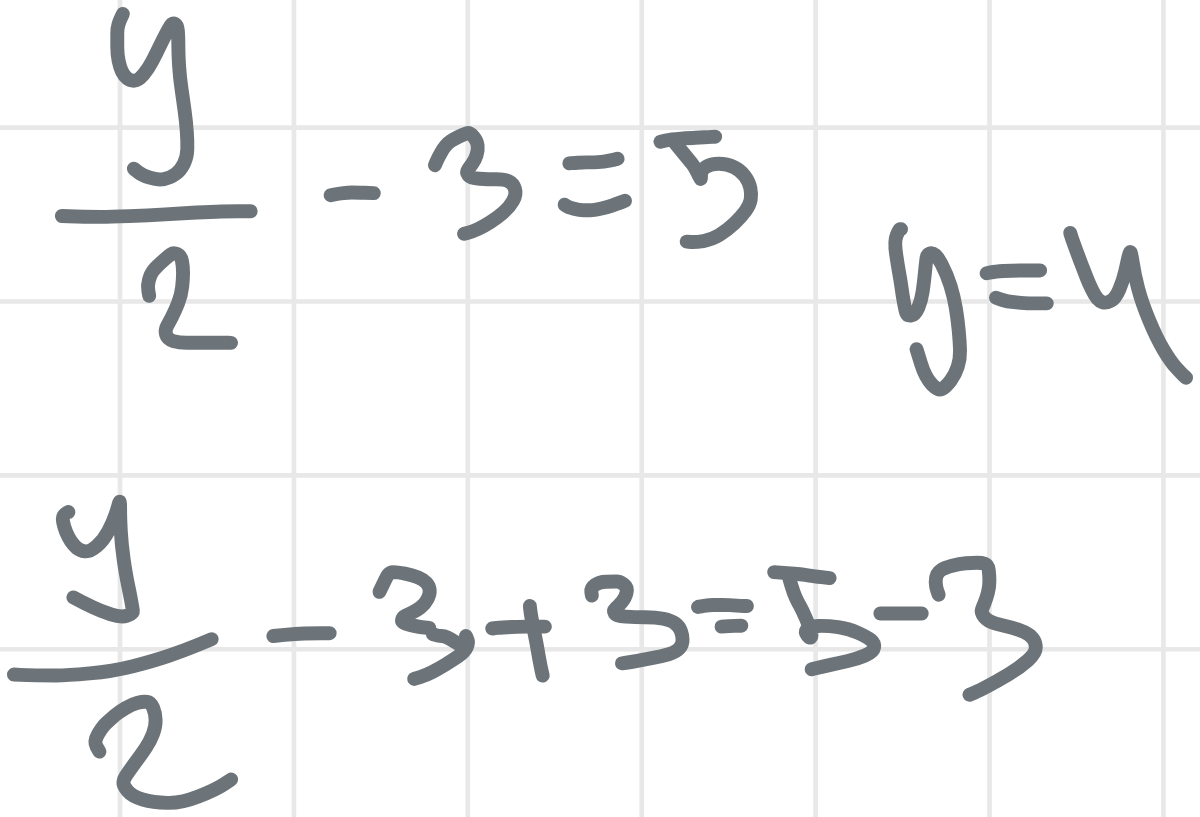 y/2 - 3 = 5
y = 4
y/2 - 3 + 3 = 5 - 3